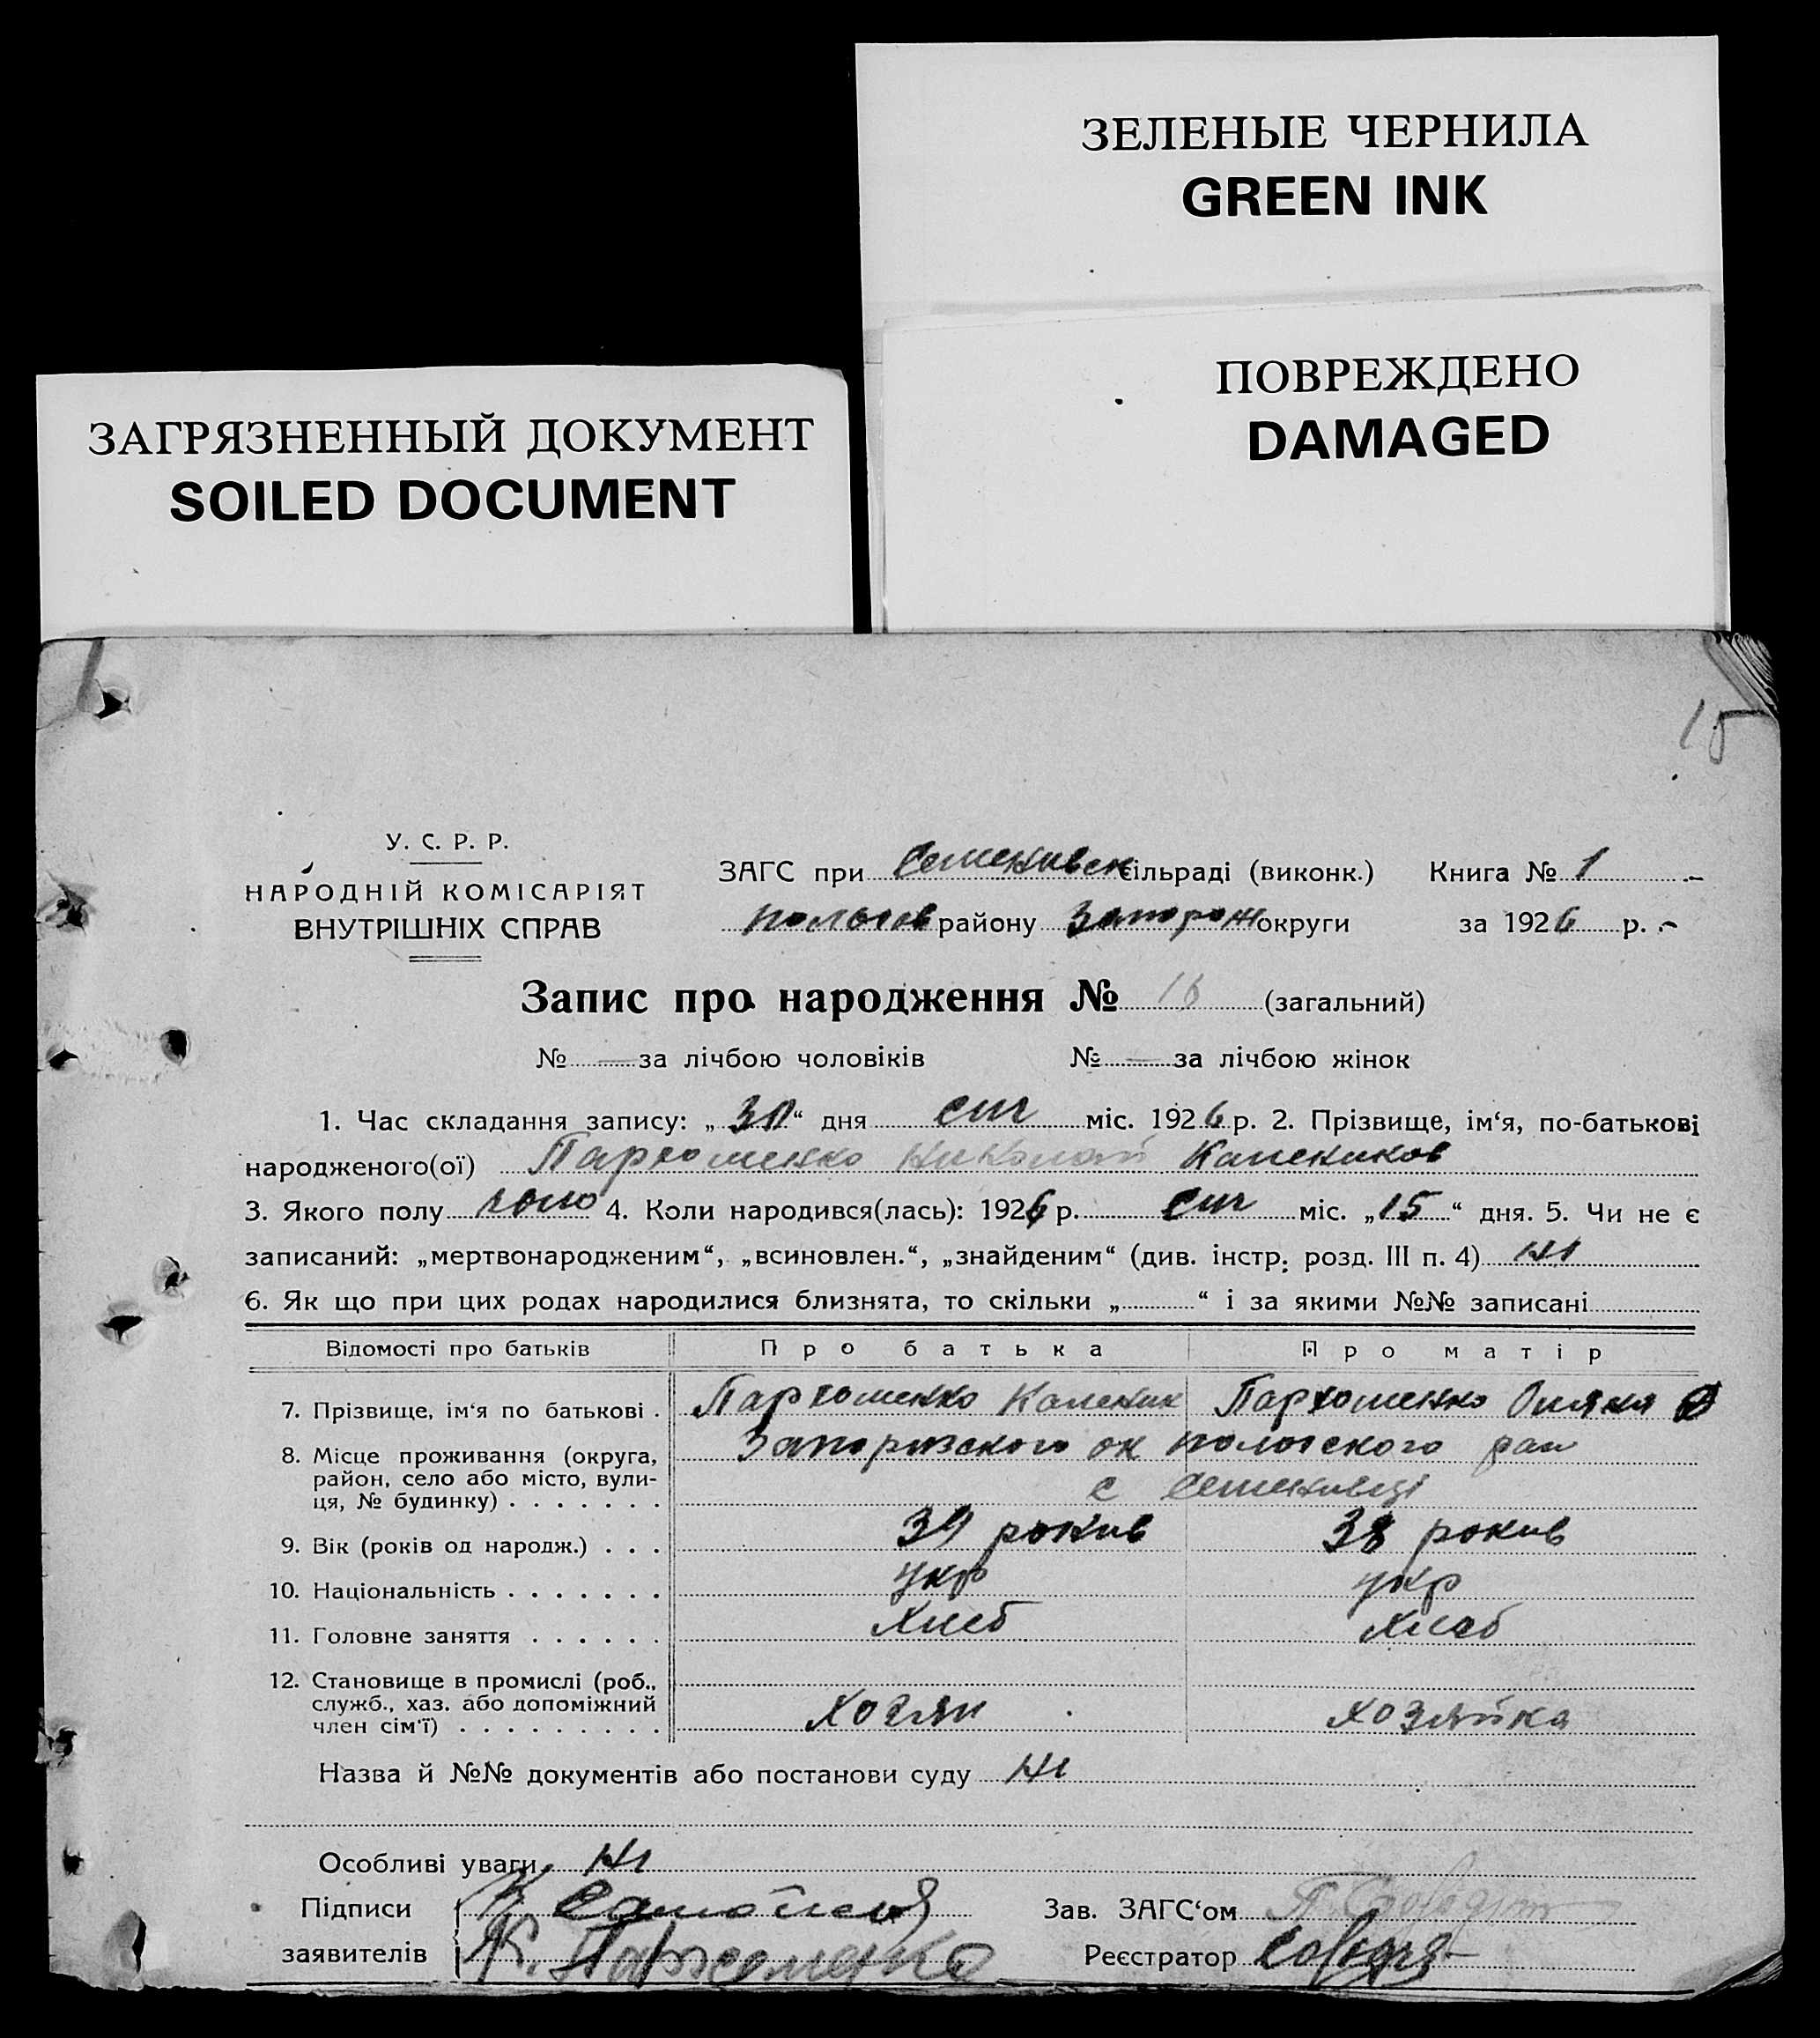 ЗЕЛЕНЫЕ ЧЕРНИЛА
GREEN INK
ПОВРЕЖДЕНО
DAMAGED
ЗАГРЯЗНЕННЫЙ ДОКУМЕНТ
SOILED DOCUMENT
15
У. С. Р. Р.
НАРОДНІЙ КОМІСАРІЯТ
ВНУТРІШНІХ СПРАВ
ЗАГС при Семенивск сільраді (виконк.) Книга № 1
пологов району Запорож округи за 1926 р.
Запис про народження № 16 (загальний)
№ — за лічбою чоловіків № — за лічбою жінок
1. Час складання запису: „30“ дня сич міс. 1926 р. 2. Прізвище, ім‘я, по-батькові
народженого(ої) Пархоменко Николай Капеников
3. Якого полу чоло 4. Коли народився(лась): 1926 р. сич міс. „15“ дня. 5. Чи не є
записаний: „мертвонародженим“, „всиновлен.“, „знайденим“ (див. інстр. розд. III п. 4) ні
6. Як що при цих родах народилися близнята, то скільки „ “ і за якими №№ записані
Відомості про батьків Про батька Про матір
7. Прізвище, ім‘я по батькові . Пархоменко Каленик Пархоменко Оляна
8. Місце проживання (округа, Запоризского ок пологского рай
район, село або місто, вули- с Семенивці
ця, № будинку) . . . . . . .
9. Вік (років од народж.) . . . 39 рокив 38 рокив
10. Національність . . . . . . . укр укр
11. Головне заняття . . . . . . Хлеб Хлеб
12. Становище в промислі (роб.,
служб., хаз. або допоміжний
член сім‘ї) . . . . . . . . . хозяи хозяйка
Назва й №№ документів або постанови суду ні
Особливі уваги ні
Підписи К Зав. ЗАГС‘ом
заявителів К. Пархоменко Реєстратор